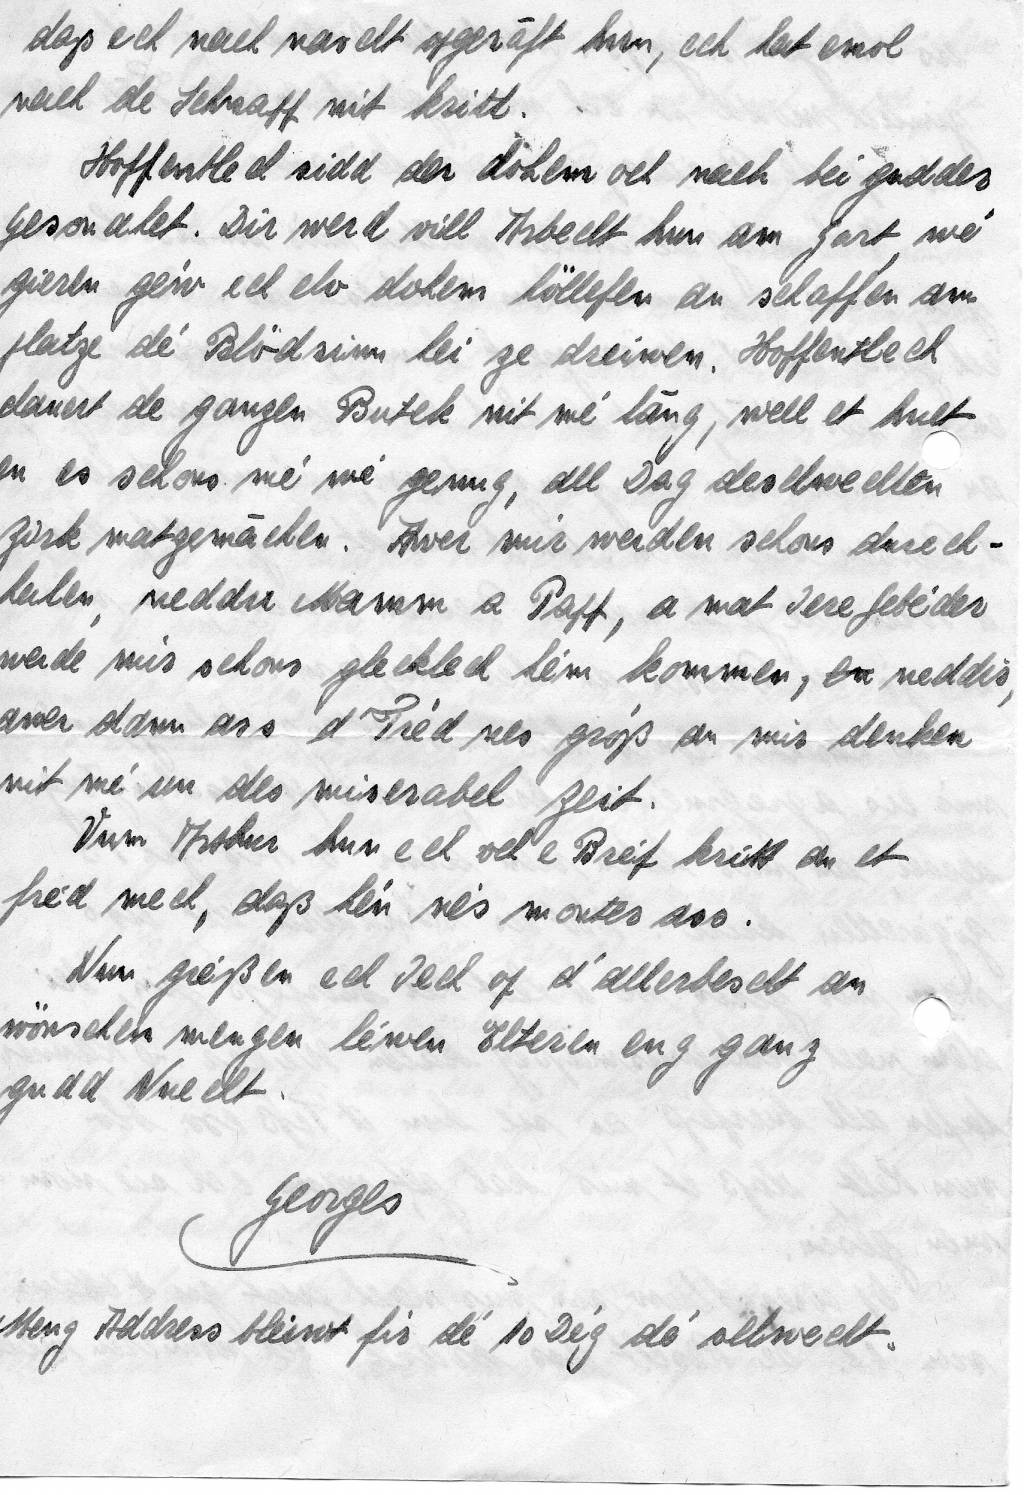 daß ech nach naischt opgeräft hun, ech hat emol
nach de Schnaff nit kritt.
Hoffentlech sidd der dohem och nach bei gudder
Gesondhet. Dir werd vill Arbecht hun am Gart, wé
gieren géiw ech elo dohem hëllefen an schaffen am
platze dé Blödsinn hei ze dreiwen. Hoffentlech
dauert de ganzen Butek nit mé läng, well et huet
en es schons mé wé genug, all Dag deselwechten
Zirk matgemächen. Awer mir werden schons durech-
halen, neddir Mamm a Papp, a mat Iere Gebéder
werde mir schons glecklech hém kommen, en neddir,
awer dann ass d'Fréd nes gróß an mir denken
nit mé un des miserabel Zeit.
Vum Arthur hun ech och e Bréif kritt an et
fréd mech, daß hén nés monter ass.
Nun gréißen ech Iech op d'allerbescht an
wönschen mengen léiwen Elteren eng ganz
gudd Nuecht.
Georges
Meng Address bleiwt fir dé 10 Dég dé sëlwecht.